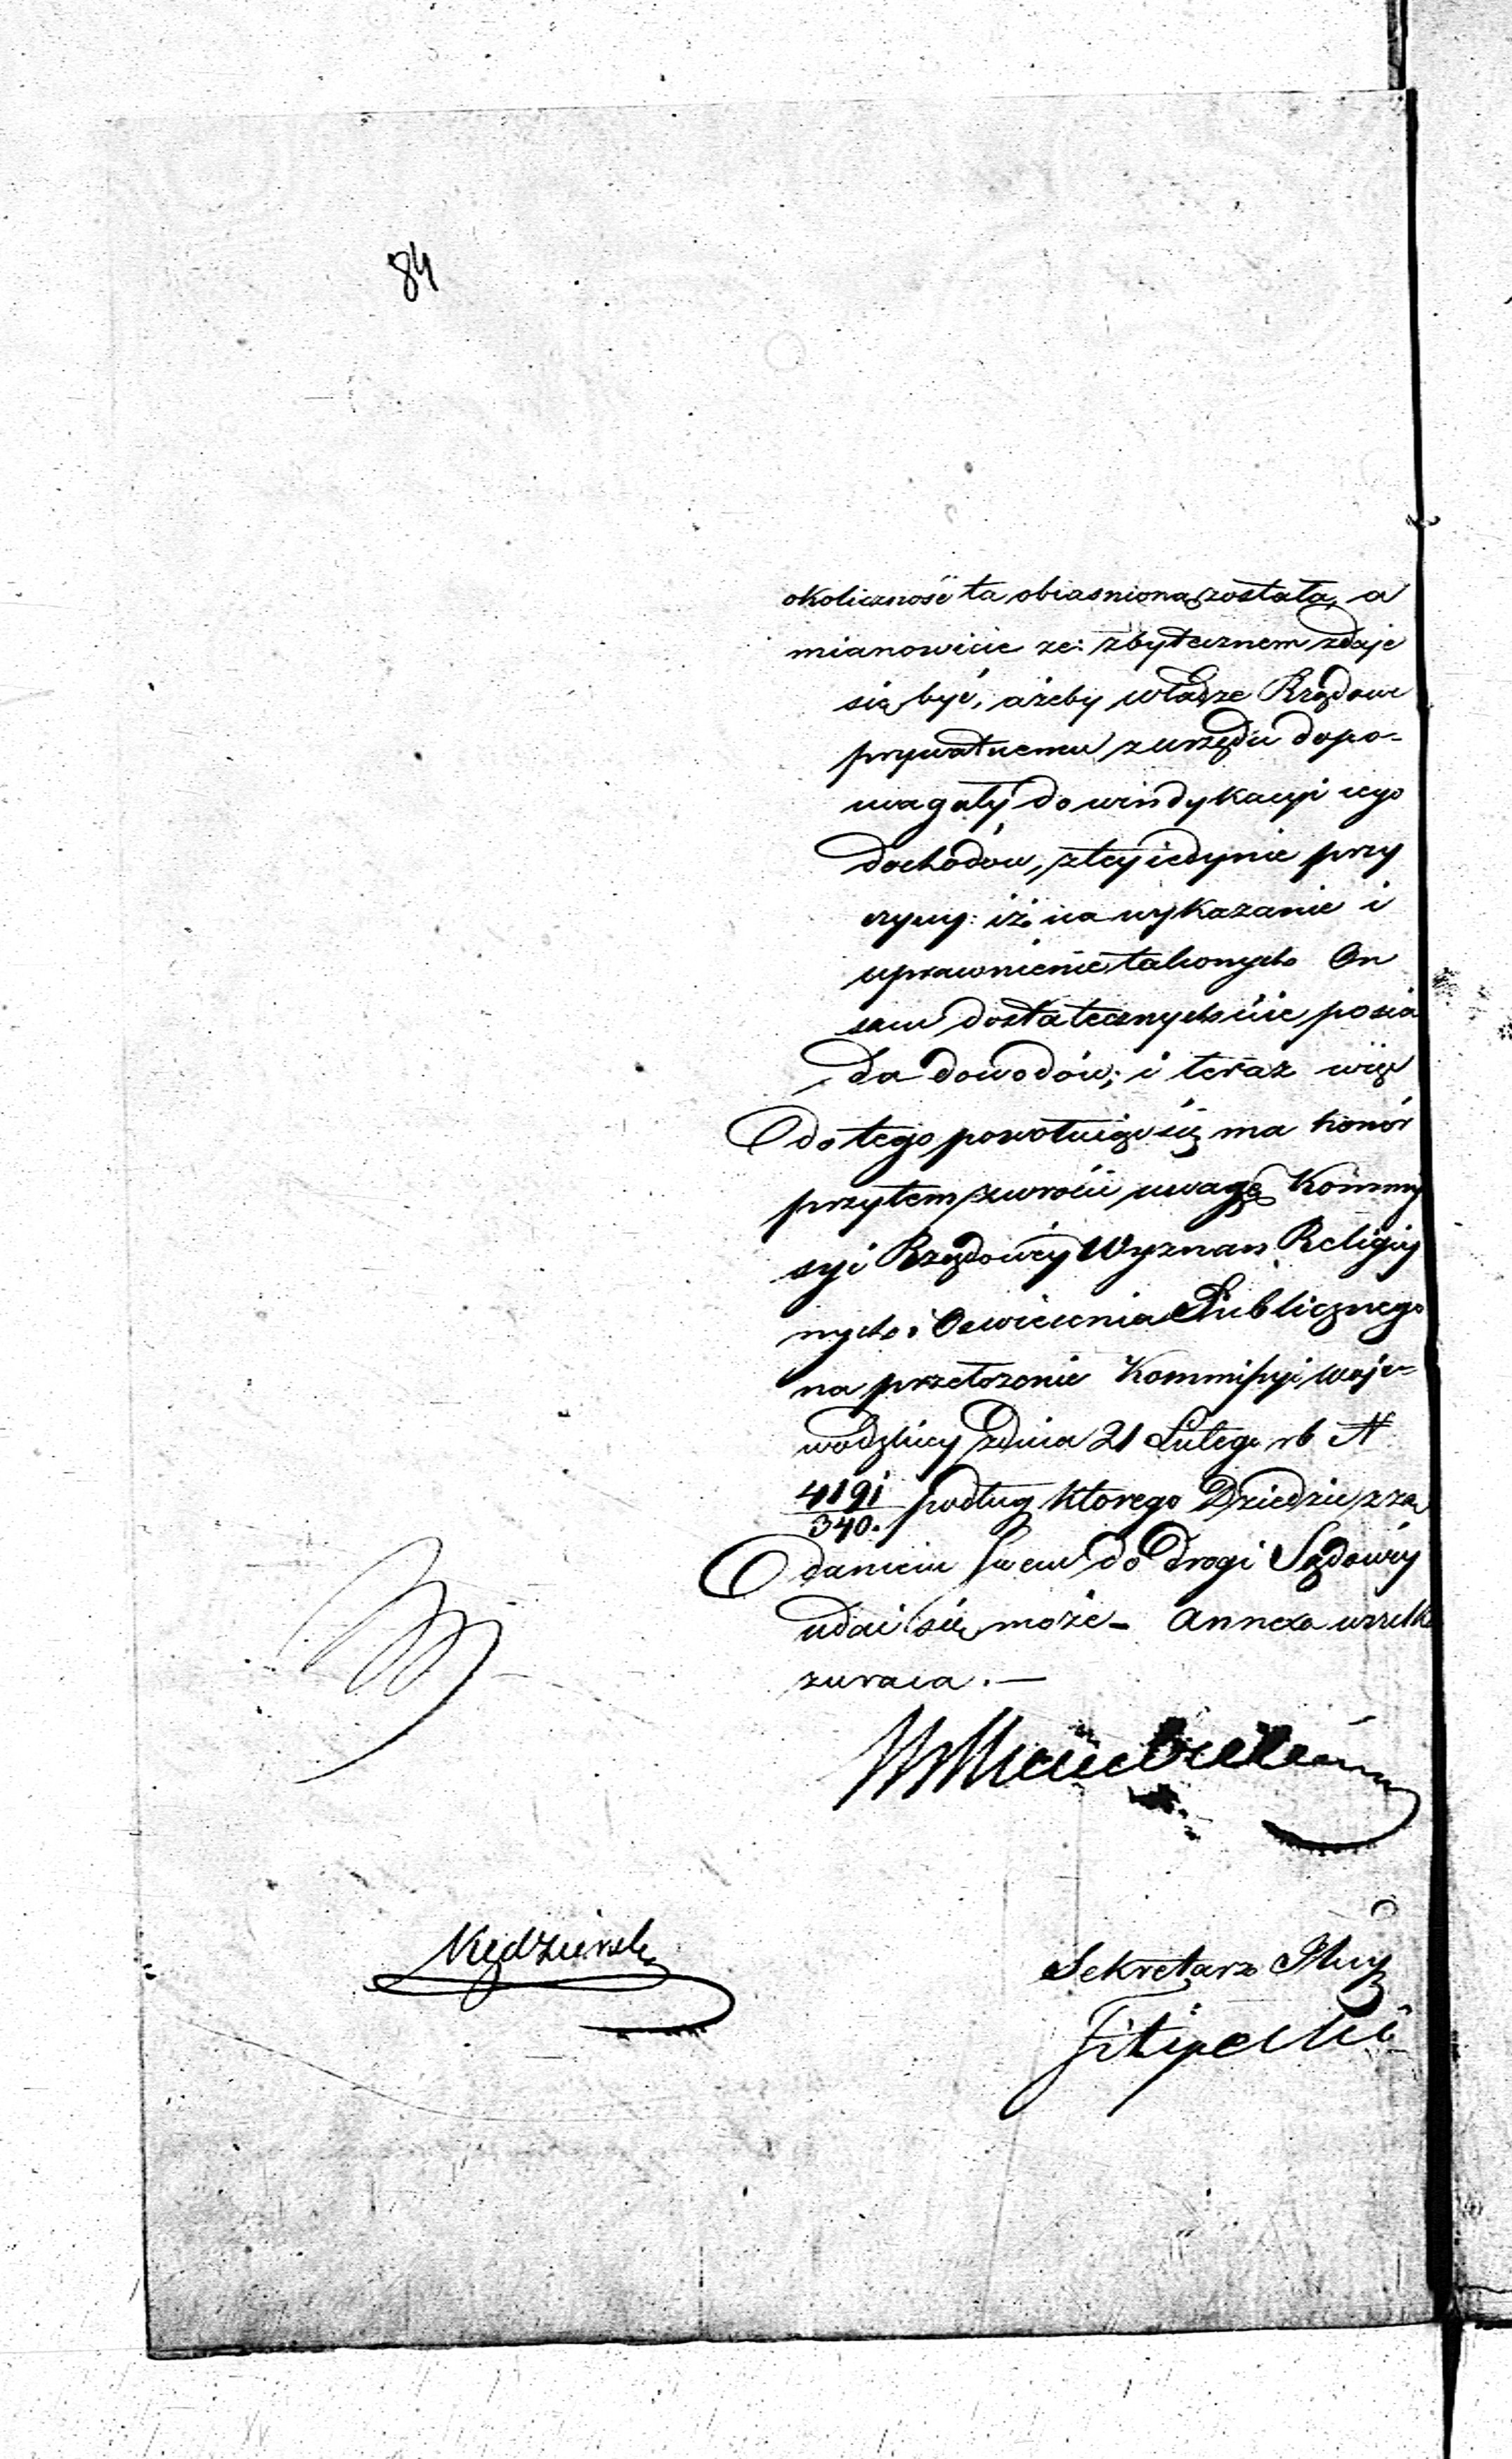 84
okoliczność ta obiasniona została, a
mianowicie że: zbytecznem zdaje
się być, ażeby władze Rządowe
prywatnemu z urzędu dopo-
magały do windykacyi iego
dochodów, z tey iedynie przy
czyny: iż na wykazanie i
uprawnienie takowych On
sam dostatecznych nie posia
da dowodów; i teraz więc
do tego powołuiąc się ma honor
przytem zwrócić uwagę Kommis
syi Rządowéy Wyznań Religiy
nych i Oswiecenia Publicznego
na przełożenie Kommissyi Woje-
wódzkiey z dnia 21 Lutego rb N
4191/340. podług ktorego Dziedzic z żą
daniem swem do drogi Sądowéy
udać się może – Annexa wszelkie
zwraca. —
Sekretarz
Filipecki